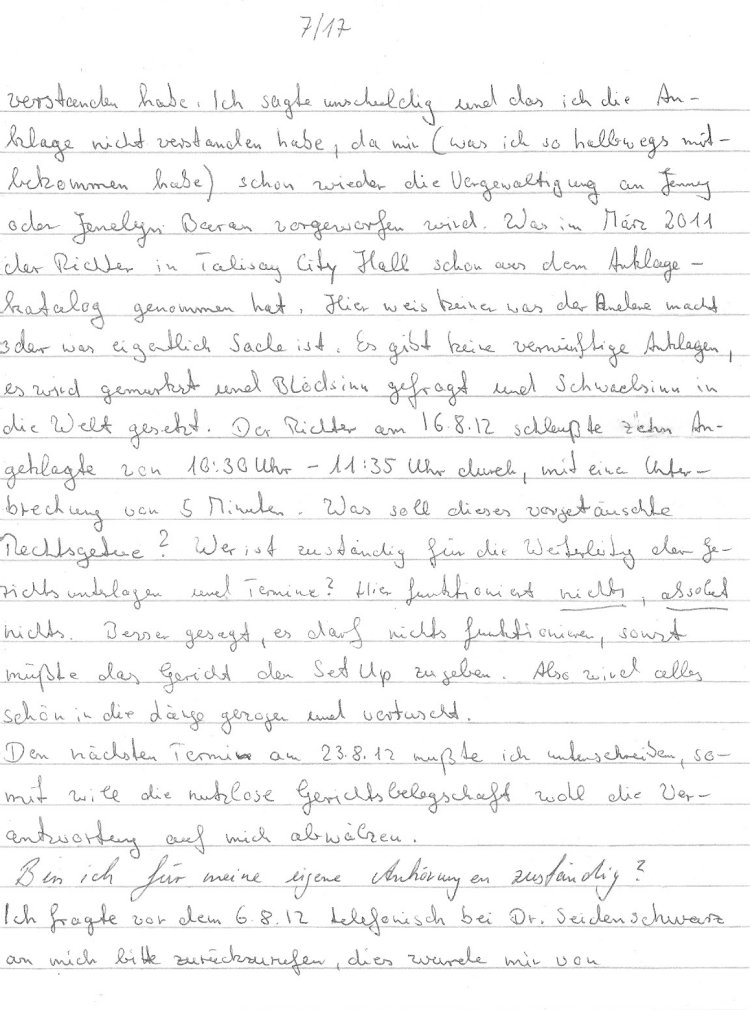 7/17
verstanden habe. Ich sagte unschuldig und das ich die An-
klage nicht verstanden habe, da mir (was ich so halbwegs mit-
bekommen habe) schon wieder die Vergewaltigung an Jenny
oder Jenelyn Baran vorgeworfen wird. Was im März 2011
der Richter in Talisay City Hall schon aus dem Anklage-
katalog genommen hat. Hier weis keiner was der Andere macht
oder was eigentlich Sache ist. Es gibt keine vernünftige Anklagen,
es wird gemurkst und Blödsinn gefragt und Schwachsinn in
die Welt gesetzt. Der Richter am 16.8.12 schleußte zehn An-
geklagte von 10:30 Uhr - 11:35 Uhr durch, mit eine Unter-
brechung von 5 Minuten. Was soll dieses vorgetäuschte
Rechtsgetue? Wer ist zuständig für die Weiterleitg der Ge-
richtsunterlagen und Termine? Hier funktioniert nichts, absolut
nichts. Besser gesagt, es darf nichts funktionieren, sonst
müßte das Gericht den Set Up zugeben. Also wird alles
schön in die Länge gezogen und vertuscht.
Den nächsten Termin am 23.8.12 mußte ich unterschreiben, so-
mit will die nutzlose Gerichtsbelegschaft wohl die Ver-
antwortung auf mich abwälzen.
Bin ich für meine eigene Anhörungen zuständig?
Ich fragte vor dem 6.8.12 telefonisch bei Dr. Seidenschwarz
an mich bitte zurückzurufen, dies wurde mir von